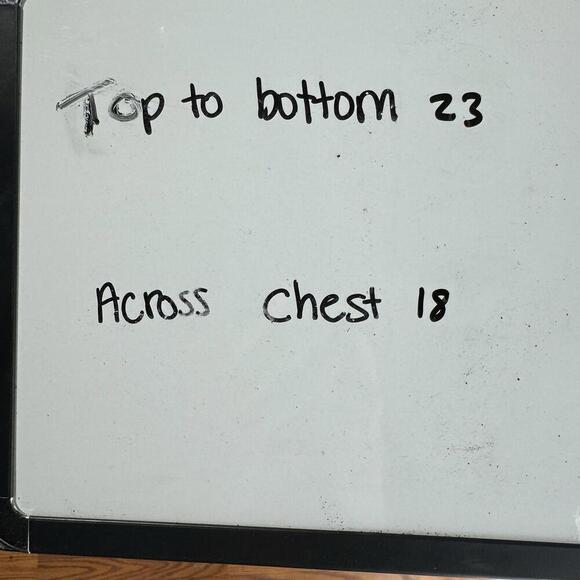 Top to bottom 23
Across Chest 18